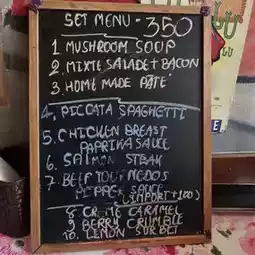 SET MENU - 350
1 MUSHROOM SOUP
2. MIXTE SALADE + BACON
3 HOME MADE PATE
4. PICCATA SPAGHETTI
5. CHICKEN BREAST
PAPRIKA SAUCE
6. SALMON STEAK
7. BEEF TOURNEDOS
PEPPER SAUCE
(IMPORT +100)
8 CREME CARAMEL
9 BERRY CRUMBLE
10. LEMON SORBET